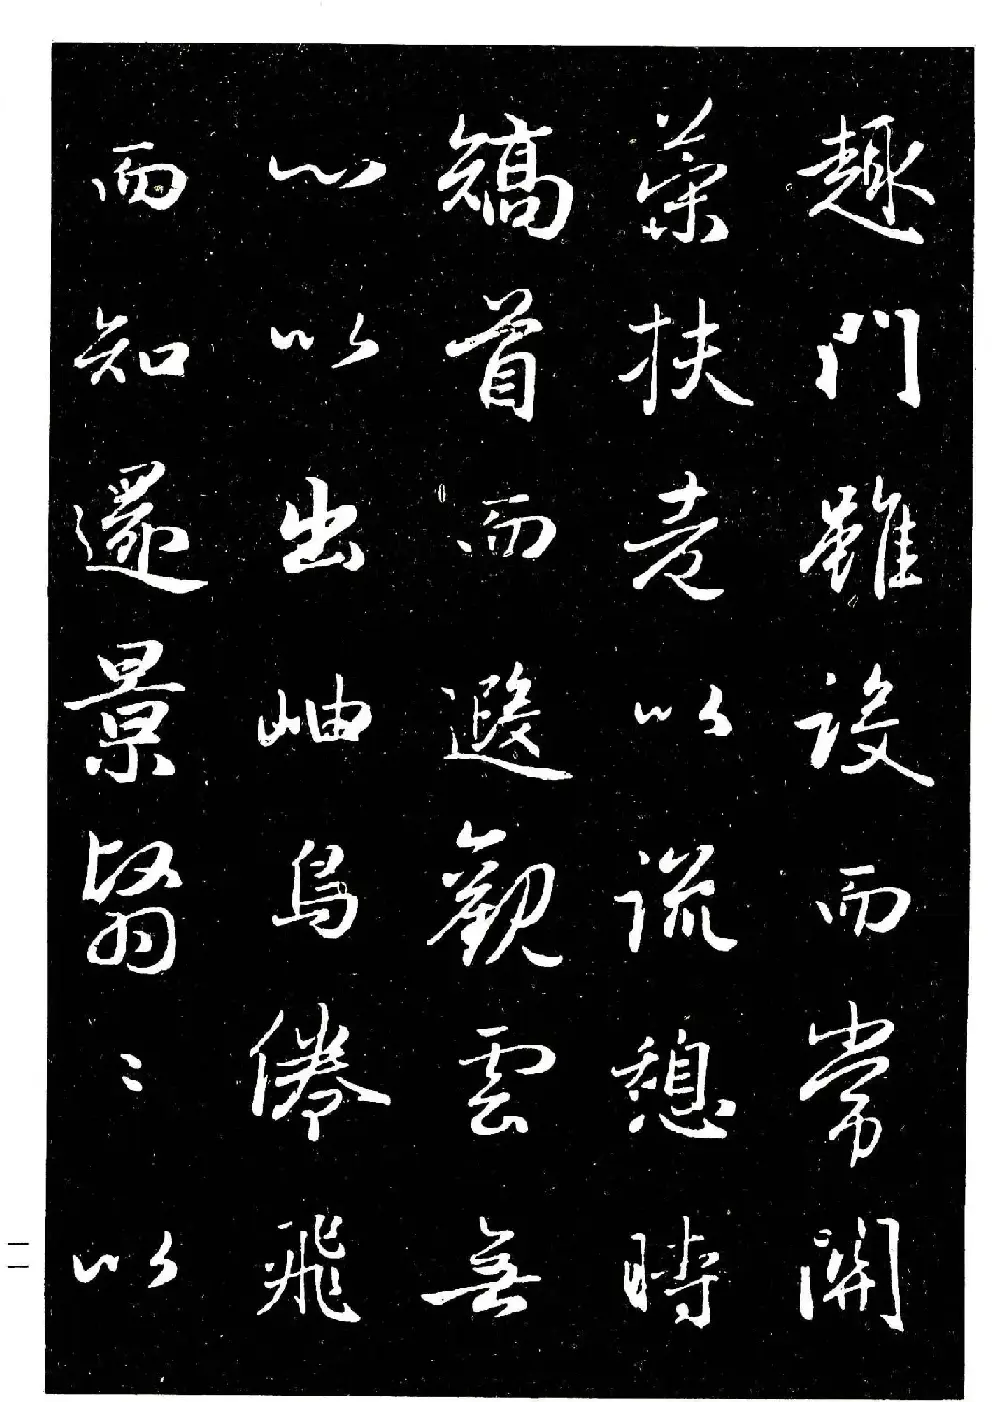 趣門雖設而常關
策扶老以流憩時
矯首而遐觀雲無
心以出岫鳥倦飛
而知還景翳〻以
一一